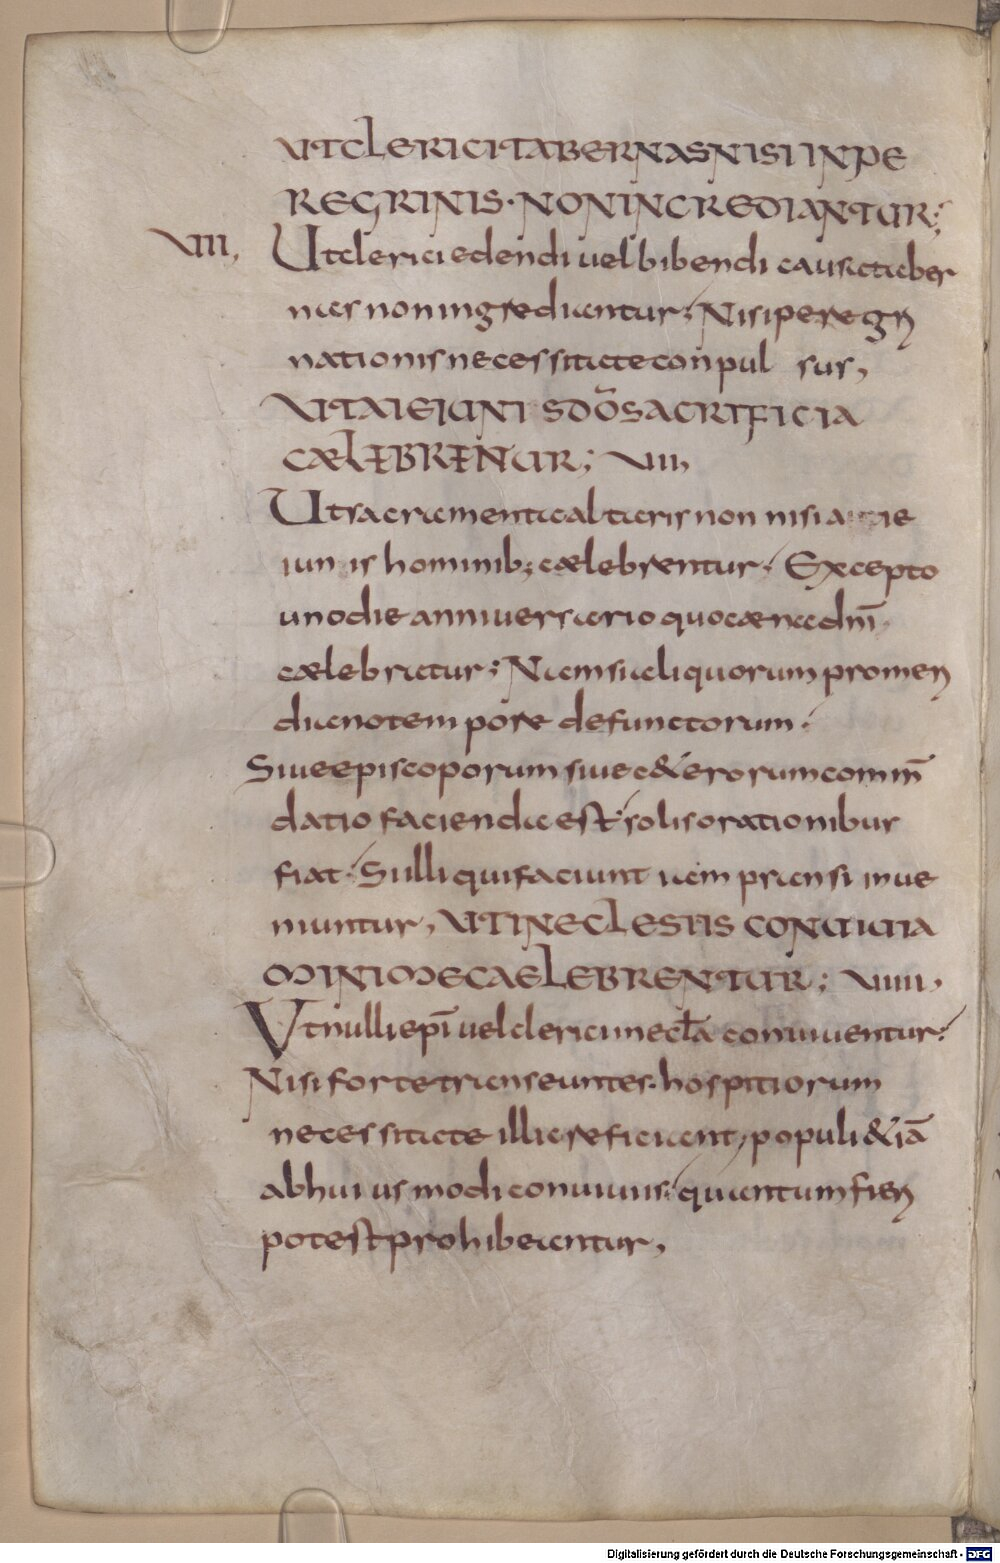 UT CLERICI TABERNAS NISI IN PE
REGRINIS· NON INCREDIANTUR;
VIII, Ut clerici edendi uel bibendi causa taber
nas non ingrediantur; Nisi peregri
nationis necessitate conpul sus,
UT A IEIUNIS DŌ SACRIFICIA
CÆLEBRENTUR; VIII,
Ut sacramenta altaris non nisi a ie
iunis hominib; cælebrentur; Excepto
uno die anniuersario quo cæna dn̄i
cælebratur; Nam si aliquorum promeri
diano tempore defunctorum.
Siue episcoporum siue c&erorum comm̄
datio facienda est; solis orationibus
fiat; Si illi qui faciunt iam pransi inue
niuntur, UT IN ECLESIIS CONUIUIA
MINIME CAELEBRENTUR; VIIII,
Ut nulli epī uel clerici in ecl̄a conuiuentur;
Nisi forte transeuntes. hospitiorum
necessitate illic reficiant, populi &iā
ab hui us modi conuiuiis; quantum fieri
potest prohibeantur,
Digitalisierung gefördert durch die Deutsche Forschungsgemeinschaft - DFG